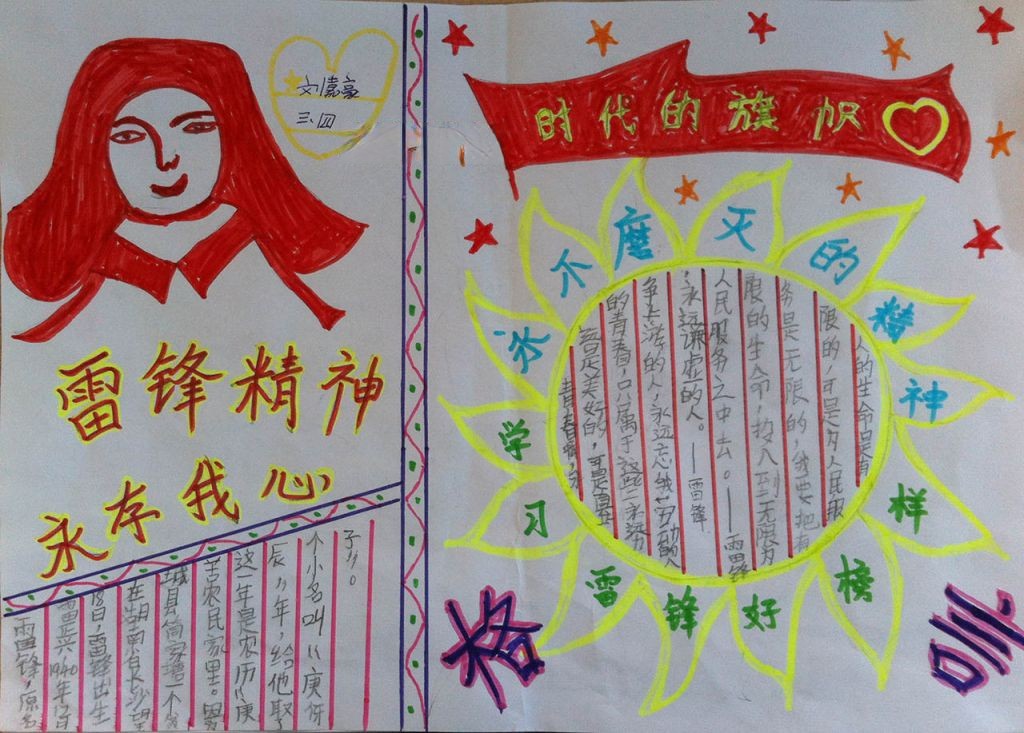 刘嘉豪
三、四
雷锋精神
永存我心
雷锋，原名
雷正兴1940年12月
18日，雷锋出生
在湖南省长沙望
城县简家塘一个贫
苦农民家里。因
这一年是农历"庚
辰"年，给他取了
个小名叫"庚伢
子"。
时代的旗帜
永不磨灭的精神
学习雷锋好榜样
人的生命是有
限的，可是为人民服
务是无限的，我要把有
限的生命，投入到无限为
人民服务之中去。——雷锋
永远谦虚的人。——雷锋
争上游的人，永远忘我劳动的人
的青春，只属于这些永远力
春是美好的，可是真正
青春啊，永
格
训